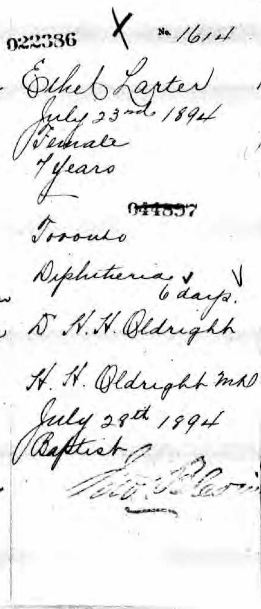 022386
No. 1614
Ethel Larter
July 23rd 1894
Female
7 years
044837
Toronto
Diphtheria
6 days.
Dr H. H. Oldright
H. H. Oldright MD
July 28th 1894
Baptist